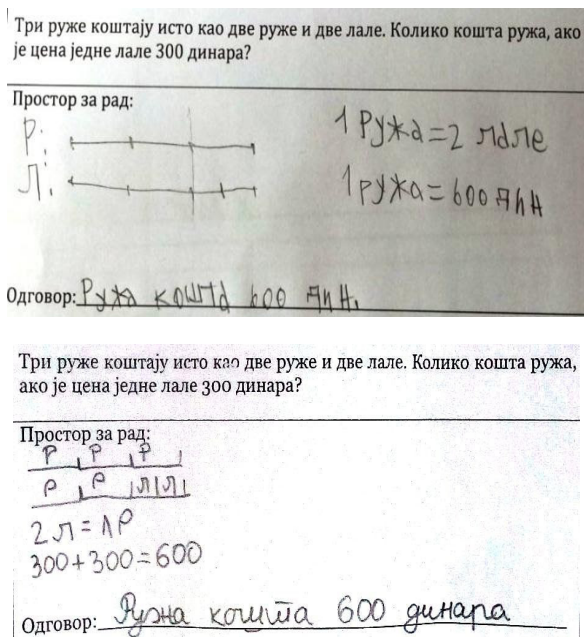 Три руже коштају исто као две руже и две лале. Колико кошта ружа, ако
је цена једне лале 300 динара?
Простор за рад:
Р:
Л:
1 Ружа = 2 лале
1 ружа = 600 дин
Одговор: Ружа кошта 600 дин.
Три руже коштају исто као две руже и две лале. Колико кошта ружа,
ако је цена једне лале 300 динара?
Простор за рад:
Р Р Р
Р Р Л Л
2 Л = 1Р
300+300=600
Одговор: Ружа кошта 600 динара